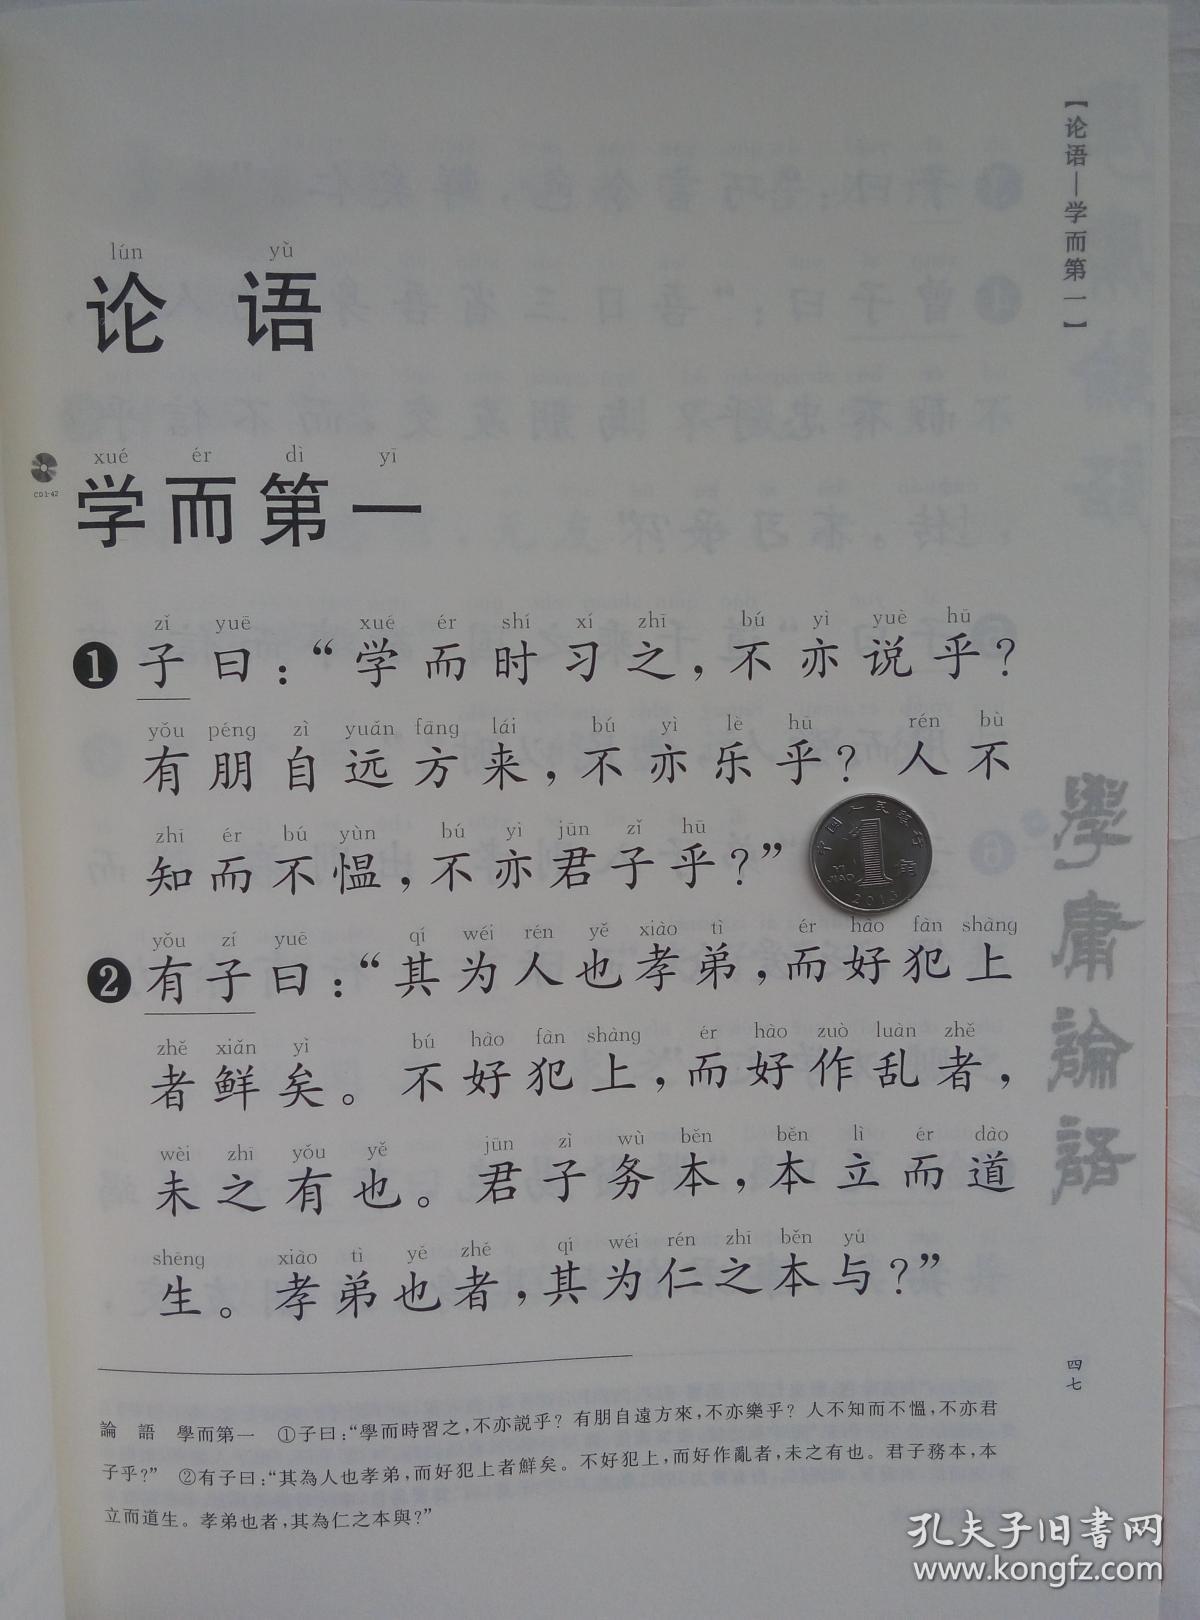 lún yù
论 语
CD1·42
xué ér dì yī
学而第一
zǐ yuē xué ér shí xí zhī bú yì yuè hū
❶子曰：“学而时习之，不亦说乎？
yǒu péng zì yuǎn fāng lái bú yì lè hū rén bù
有朋自远方来，不亦乐乎？人不
zhī ér bú yùn bú yì jūn zǐ hū
知而不愠，不亦君子乎？”
yǒu zí yuē qí wéi rén yě xiào tì ér hào fàn shàng
❷有子曰：“其为人也孝弟，而好犯上
zhě xiǎn yì bú hào fàn shàng ér hào zuò luàn zhě
者鲜矣。不好犯上，而好作乱者，
wèi zhī yǒu yě jūn zì wù běn běn lì ér dào
未之有也。君子务本，本立而道
shēng xiào tì yě zhě qí wéi rén zhī běn yú
生。孝弟也者，其为仁之本与？”
論 語 學而第一 ①子曰：“學而時習之，不亦説乎？有朋自遠方來，不亦樂乎？人不知而不愠，不亦君
子乎？” ②有子曰：“其為人也孝弟，而好犯上者鮮矣。不好犯上，而好作亂者，未之有也。君子務本，本
立而道生。孝弟也者，其為仁之本與？”
【论语—学而第一】
學庸論語
四七
中国人民银行
1
角
YI JIAO
2013
孔夫子旧书网
www.kongfz.com